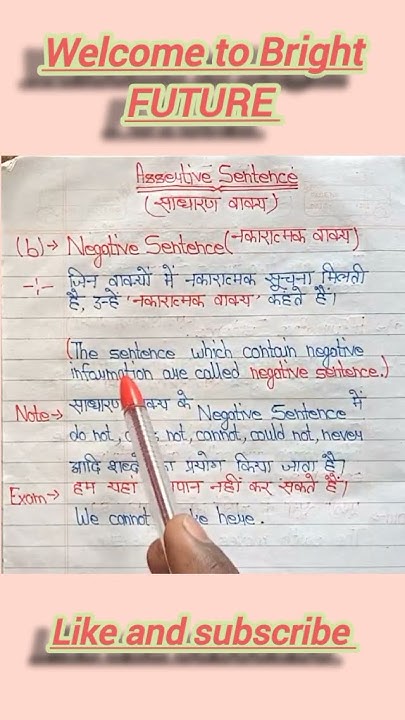 Welcome to Bright
FUTURE
Assertive Sentence
(साधारण वाक्य)
(b)→ Negative Sentence (नकारात्मक वाक्य)
-:- जिन वाक्यों में नकारात्मक सूचना मिलती
है, उन्हे 'नकारात्मक वाक्य' कहते हैं।
(The sentence which contain negative
information are called negative sentence.)
Note→ साधारण वाक्य के Negative Sentence में
do not, not, cannot, could not, never
आदि शब्दों का प्रयोग किया जाता है।
Exam→ हम यहां नहीं कर सकते हैं।
We cannot here.
Like and subscribe